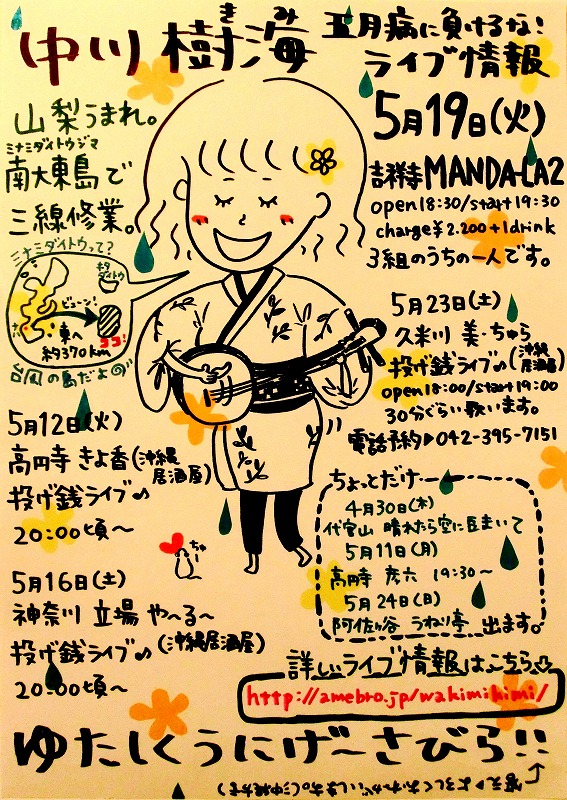 五月病に負けるな!
ライブ情報
きみ
中川樹海
山梨うまれ。
ミナミダイトウジマ
南大東島で
三線修業。
ミナミダイトウって?
キタ
ダイトウ
ビューン!
ナハ
東へ
約370km
ココ!
台風の島だよ
5月12日(火)
高円寺 きよ香(沖縄居酒屋)
投げ銭ライブ♪
20:00頃〜
5月16日(土)
神奈川 立場 や〜る〜
投げ銭ライブ♪(沖縄居酒屋)
20:00頃〜
ちゅ
5月19日(火)
吉祥寺MANDA-LA2
open18:30/start19:30
charge¥2.200+1drink
3組のうちの一人です。
5月23日(土)
久米川 美・ちゅら
投げ銭ライブ♪(沖縄居酒屋)
open18:00/start19:00
30分ぐらい歌います。
電話予約▶042-395-7151
ちょっとだけ
4月30日(木)
代官山 晴れたら空に豆まいて
5月11日(月)
高円寺 彦六 19:30〜
5月24日(日)
阿佐ヶ谷 うねり亭 出ます。
詳しいライブ情報はこちら
http://amebro.jp/wakimikimi/
ゆたしくうにげ〜さびら!!